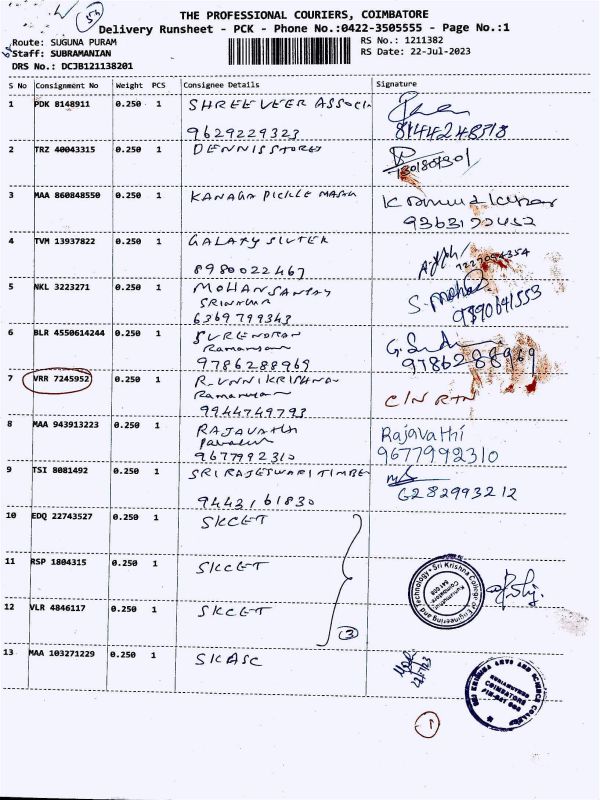 53
THE PROFESSIONAL COURIERS, COIMBATORE
Delivery Runsheet - PCK - Phone No.:0422-3505555 - Page No.:1
Route: SUGUNA PURAM
RS No.: 1211382
Staff: SUBRAMANIAN
RS Date: 22-Jul-2023
DRS No.: DCJB121138201
S No Consignment No Weight PCS Consignee Details Signature
1 PDK 8148911 0.250 1 SHREE VEER ASSOCIA
9629229323
2 TRZ 40043315 0.250 1 DENNIS STORES
3 MAA 860848550 0.250 1 KANAGA PICKLE MASALA
4 TVM 13937822 0.250 1 GALAXY SILVER
8980022467
5 NKL 3223271 0.250 1 MOHAN SANJAY
6369799343
6 BLR 4550614244 0.250 1 SURENDRAN
9786288969 9786288969
7 VRR 7245952 0.250 1 R. UNNIKRISHNAN
9944749793 C/N RTN
8 MAA 943913223 0.250 1 RAJAVATHI Rajavathi
9677992310 9677992310
9 TSI 8081492 0.250 1 SRI RAJESWARI TIMBE
9443161830 6282993212
10 EDQ 22743527 0.250 1 SKCET
11 RSP 1804315 0.250 1 SKCET
12 VLR 4846117 0.250 1 SKCET
3
Sri Krishna College of Engineering and Technology
Kuniamuthur
Coimbatore
641 008
13 MAA 103271229 0.250 1 SKASC
SRI KRISHNA ARTS AND SCIENCE COLLEGE
KUNIAMUTHUR
COIMBATORE
PIN-641 008
1